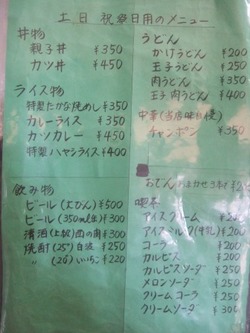 土日祝祭日用のメニュー
丼物
親子丼 ¥350
カツ丼 ¥450
ライス物
特製たかな焼めし ¥350
カレーライス ¥350
カツカレー ¥450
特製ハヤシライス ¥400
飲み物
ビール(大びん) ¥500
ビール(350ml缶) ¥300
清酒(上撰)西の関 ¥300
焼酎(25°)白波 ¥250
〃 (20)いいちこ ¥220
うどん
かけうどん ¥200
玉子うどん ¥250
肉うどん ¥350
玉子肉うどん ¥400
中華(当店味自慢)
チャンポン ¥350
おでん
喫茶
アイスクリーム ¥200
アイスミルク(牛乳) ¥200
コーラ ¥200
カルピス ¥200
カルピスソーダ ¥250
メロンソーダ ¥250
クリームコーラ ¥250
クリームソーダ ¥300